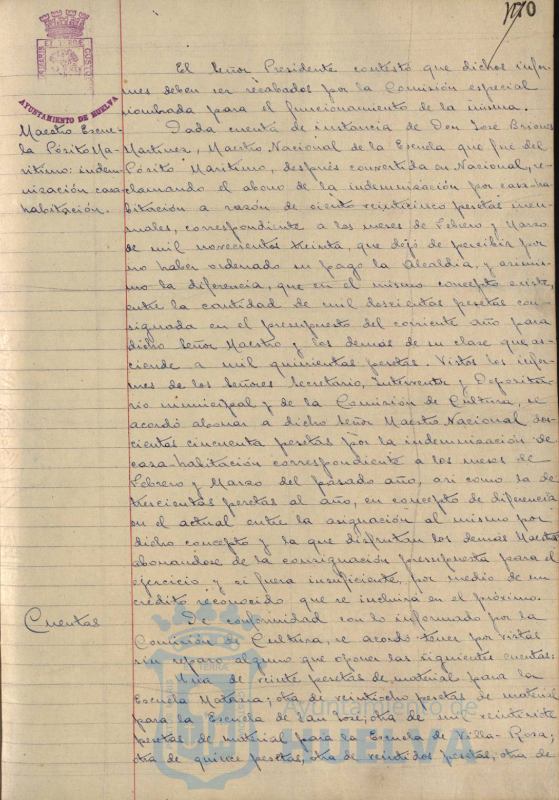 170
AYUNTAMIENTO DE HUELVA
El Señor Presidente contestó que dichos infor-
mes deben ser recabados por la Comisión especial
nombrada para el funcionamiento de la misma.
Maestro Escue-
la Pósito Ma-
rítimo: indem-
nización casa-
habitación.
Dada cuenta de instancia de Don José Briones
Martinez, Maestro Nacional de la Escuela que fué del
Pósito Marítimo, después convertida en Nacional, re-
clamando el abono de la indemnización por casa-ha-
bitación a razón de ciento veinticinco pesetas men-
suales, correspondiente a los meses de Febrero y Marzo
de mil novecientos treinta, que dejó de percibir por
no haber ordenado su pago la Alcaldía, y asimis-
mo la diferencia, que en el mismo concepto existe,
entre la cantidad de mil doscientas pesetas con-
signada en el presupuesto del corriente año para
dicho Señor Maestro y los demás de su clase que as-
ciende a mil quinientas pesetas. Vistos los infor-
mes de los Señores Secretario, Interventor y Deposita-
rio municipal y de la Comisión de Cultura, se
acordó abonar a dicho Señor Maestro Nacional dos-
cientas cincuenta pesetas por la indemnización de
casa-habitación correspondiente a los meses de
Febrero y Marzo del pasado año, así como la de
trescientas pesetas al año, en concepto de diferencia
en el actual entre la asignación al mismo por
dicho concepto y la que disfrutan los demás Maestros
abonandose de la consignación presupuesta para el
ejercicio y si fuera insuficiente, por medio de un
crédito reconocido que se incluirá en el próximo.
Cuentas
De conformidad con lo informado por la
Comisión de Cultura, se acordó tener por vistas
sin reparo alguno que oponer las siguientes cuentas:
Una de veinte pesetas de material para la
Escuela Materna; otra de veintiocho pesetas de material
para la Escuela de San José; otra de mil veintisiete
pesetas de material para la Escuela de Villa-Rosa;
otra de quince pesetas; otra de veintidos pesetas; otra de
Ayuntamiento de
HUELVA